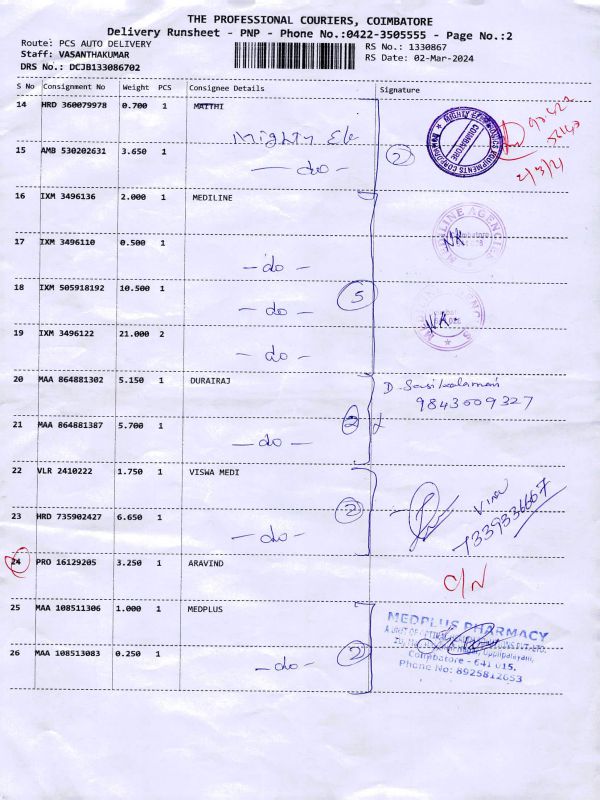 THE PROFESSIONAL COURIERS, COIMBATORE
Delivery Runsheet - PNP - Phone No.:0422-3505555 - Page No.:2
Route: PCS AUTO DELIVERY RS No.: 1330867
Staff: VASANTHAKUMAR RS Date: 02-Mar-2024
DRS No.: DCJB133086702
S No Consignment No Weight PCS Consignee Details Signature
14 HRD 360079978 0.700 1 MATTHI
Mighty Ele
15 AMB 530202631 3.650 1
- do - 2
COIMBATORE
2/3/24
16 IXM 3496136 2.000 1 MEDILINE
17 IXM 3496110 0.500 1
- do - NK
18 IXM 505918192 10.500 1
- do - 5
NK.
19 IXM 3496122 21.000 2
- do -
20 MAA 864881302 5.150 1 DURAIRAJ
9843009327
21 MAA 864881387 5.700 1
- do - 2
22 VLR 2410222 1.750 1 VISWA MEDI
23 HRD 735902427 6.650 1
- do - 2
24 PRO 16129205 3.250 1 ARAVIND
C/N
25 MAA 108511306 1.000 1 MEDPLUS
26 MAA 108513083 0.250 1
- do - 2
MEDPLUS PHARMACY
Coimbatore - 641 015.
Phone No: 8925812653